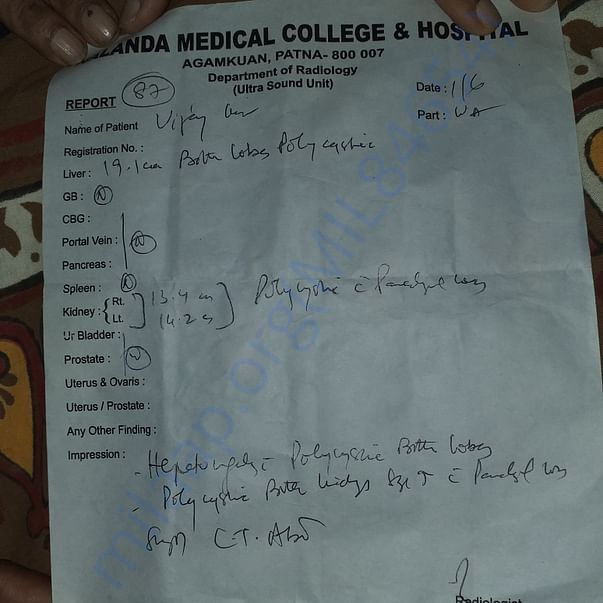 LANDA MEDICAL COLLEGE & HOSPITAL
AGAMKUAN, PATNA- 800 007
Department of Radiology
(Ultra Sound Unit)
REPORT 87
Date : 1/6
Name of Patient Vijay
Part : W A
Registration No. :
Liver : 19.1 cm Both lobes Polycystic
GB : N
CBG :
Portal Vein : N
Pancreas :
Spleen : N
Kidney : { Rt. 13.4 cm
Lt. 14.2 } Polycystic c̄
Ur Bladder :
Prostate : N
Uterus & Ovaris :
Uterus / Prostate :
Any Other Finding :
Impression :
- Hepatomegaly c̄ Polycystic Both lobes
- Polycystic Both kidneys Size ↑ c̄
C.T. Abd
Radiologist